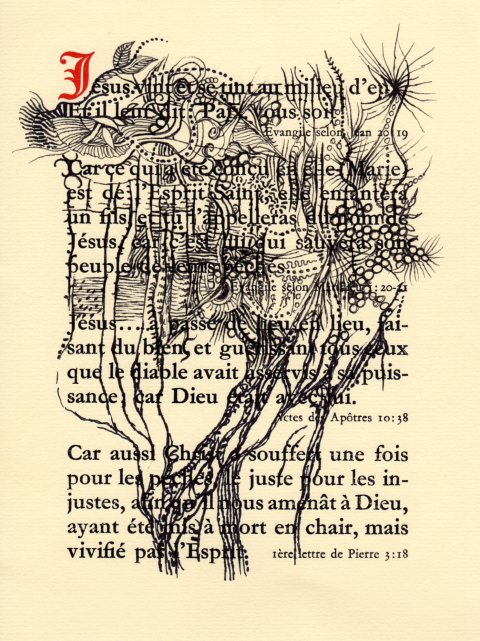 Jésus vint et se tint au milieu d'eux
Et il leur dit: Paix vous soit
Evangile selon Jean 20:19
Car ce qui a été conçu en elle (Marie)
est de l'Esprit Saint, elle enfantera
un fils, et tu l'appelleras du nom de
Jésus, car c'est lui qui sauvera son
peuple de leurs péchés
Evangile selon Matthieu 1:20-21
Jésus.... a passé de lieu en lieu, fai-
sant du bien et guérissant tous ceux
que le diable avait asservis à sa puis-
sance, car Dieu était avec lui.
Actes des Apôtres 10:38
Car aussi Christ a souffert une fois
pour les péchés, le juste pour les in-
justes, afin qu'il nous amenât à Dieu,
ayant été mis à mort en chair, mais
vivifié par l'Esprit.
1ère lettre de Pierre 3:18